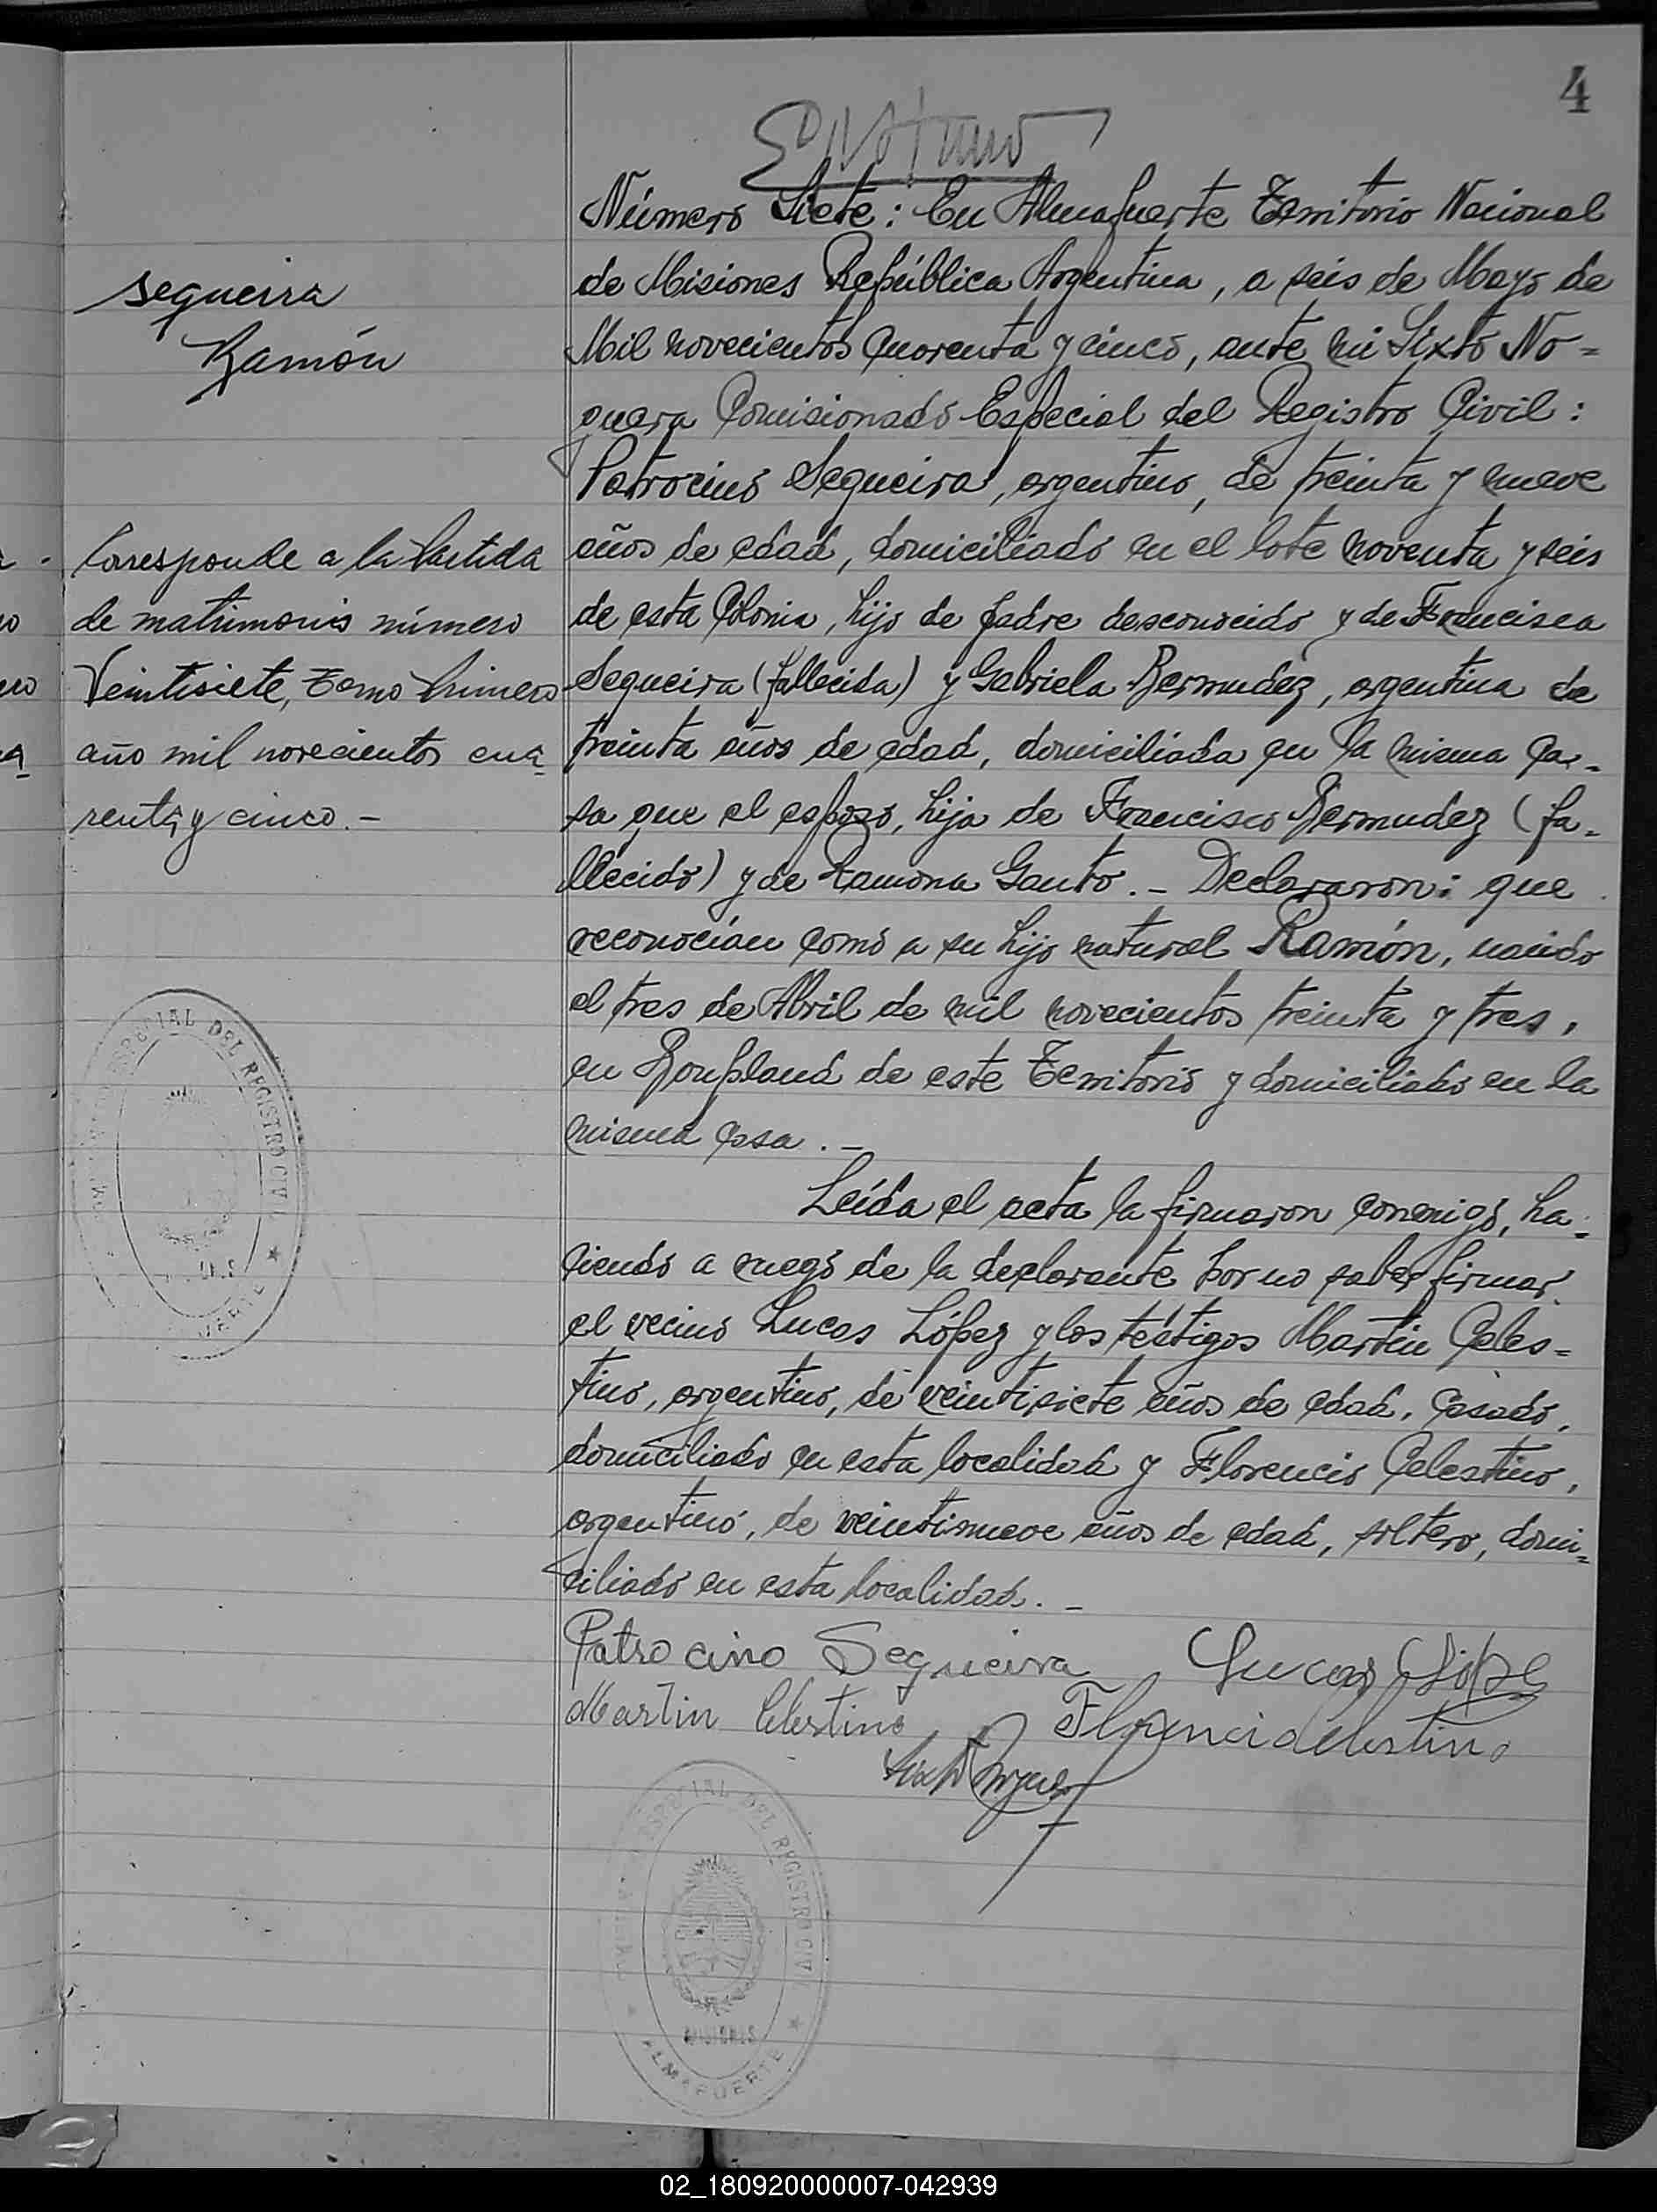 4
Número Siete: En Almafuerte Territorio Nacional
de Misiones República Argentina, a seis de Mayo de
Mil novecientos cuarenta y cinco, ante mi Sixto No=
guera Comisionado Especial del Registro Civil:
Patrocino Sequeira, argentino, de treinta y nueve
años de edad, domiciliado en el lote noventa y seis
de esta Colonia, hijo de padre desconocido y de Francisca
Sequeira (fallecida) y Gabriela Bermudez, argentina de
treinta años de edad, domiciliada en la misma ca-
sa que el esposo, hija de Francisco Bermudez (fa-
llecido) y de Ramona Gauto.- Declararon: que
reconocían como a su hijo natural Ramón, nacido
el tres de Abril de mil novecientos treinta y tres,
en Bonpland de este Territorio y domiciliado en la
misma casa.-
Leída el acta la firmaron conmigo, ha-
ciendo a ruego de la declarante por no saber firmar
el vecino Lucas López y los téstigos Martin Celes=
tino, argentino, de veintisiete años de edad, casado,
domiciliado en esta localidad y Florencio Celestino,
argentino, de veintinueve años de edad, soltero, domi=
ciliado en esta localidad.-
Patrocino Sequeira Lucas López
Martin Celestino Florencio Celestino
sequeira
Ramón
Corresponde a la Partida
de matrimonio número
Veintisiete, Tomo Primero
año mil novecientos cua-
renta y cinco.-
ESPECIAL DEL REGISTRO CIVIL
ESPECIAL DEL REGISTRO CIVIL
MISIONES
ALMAFUERTE
02_180920000007-042939